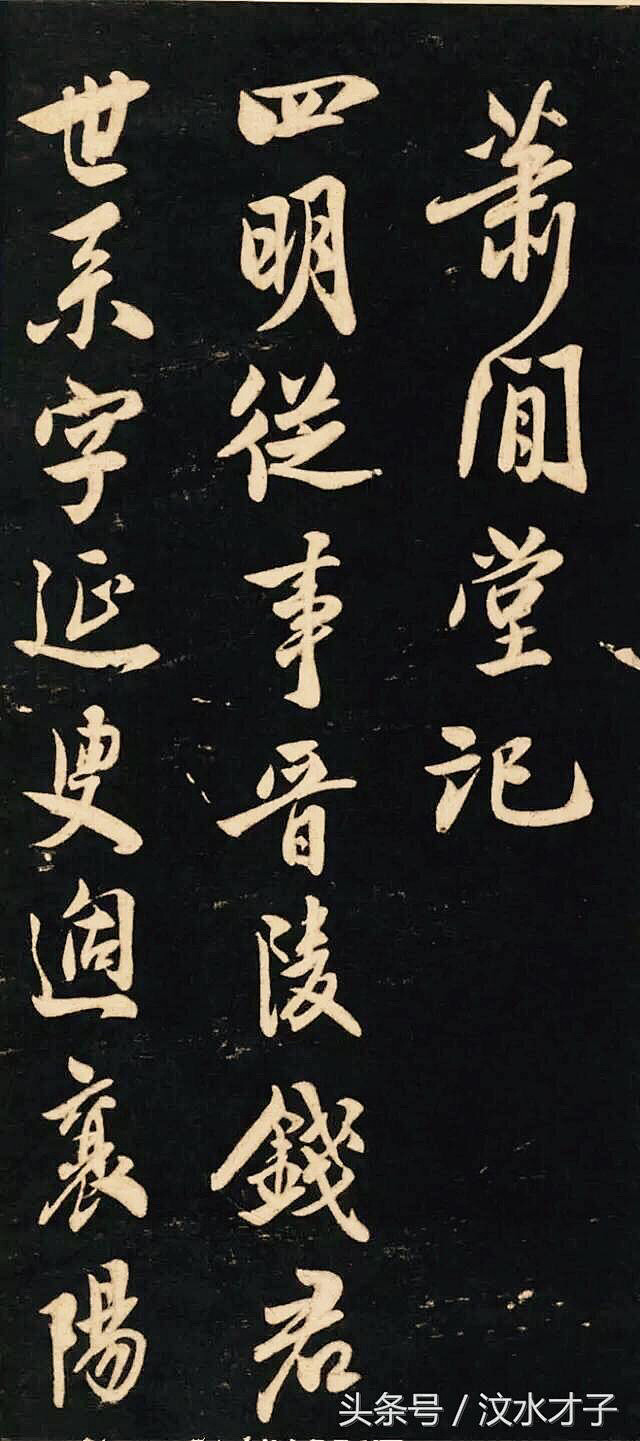 萧閒堂记
四明從事晋陵錢君
世系字延叟適襄陽
头条号 / 汶水才子